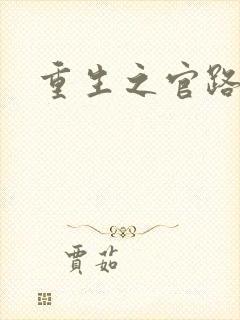 重生之官路
賈茹